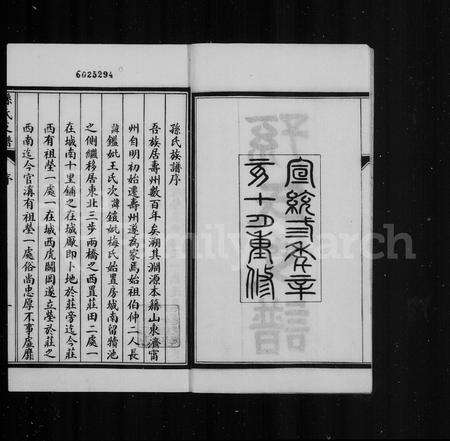 6025294
宣統弎秊辛
亥十月重修
孫氏族譜序
吾族居壽州數百年矣溯其淵源本籍山東濟甯
州自明初始遷壽州遂為家焉始祖伯仲二人長
諱鑑妣王氏次諱鎧妣梅氏始置房城南留犢池
之側繼移居東北三步兩橋之西置莊田二處一
在城南十里鋪之在城厰即卜地於莊旁迄今莊
西有祖塋一處一在城西虎關岡遂立塋於莊之
西南迄今官溝有祖塋一處俗尚忠厚不事虛靡